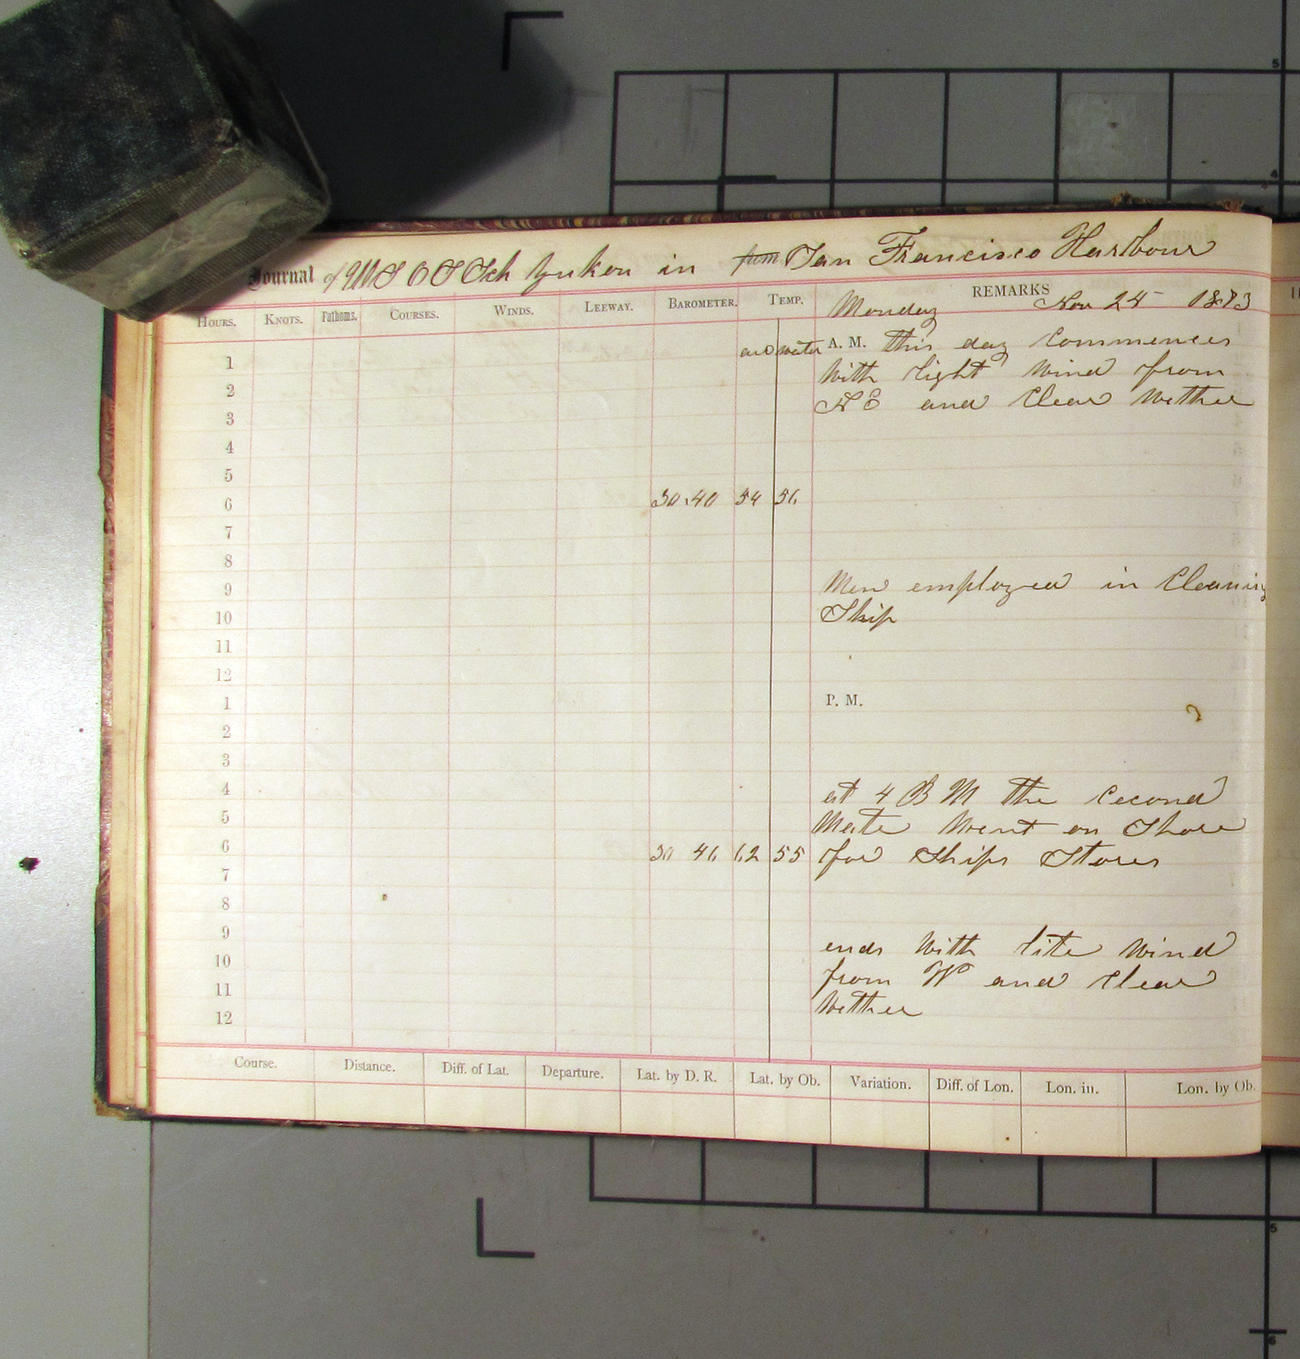 Journal of U S C S Sch Yukon in from San Francisco Harbour
HOURS. KNOTS. Fathoms. COURSES. WINDS. LEEWAY. BAROMETER. TEMP. REMARKS
Monday Nov 24 1873
1 air water A. M. this day Commences
2 With light Wind from
3 N E and Clear Wether
4
5
6 30.40 54 56
7
8
9 Men employed in Cleaning
10 Ship
11
12
1 P. M.
2
3
4 at 4 P M the Second
5 Mate Went on Shore
6 30 46 62 55 for Ships Stores
7
8
9 ends With lite Wind
10 from W and Clear
11 Wether
12
Course. Distance. Diff. of Lat. Departure. Lat. by D. R. Lat. by Ob. Variation. Diff. of Lon. Lon. in. Lon. by Ob.
5
4
5
6